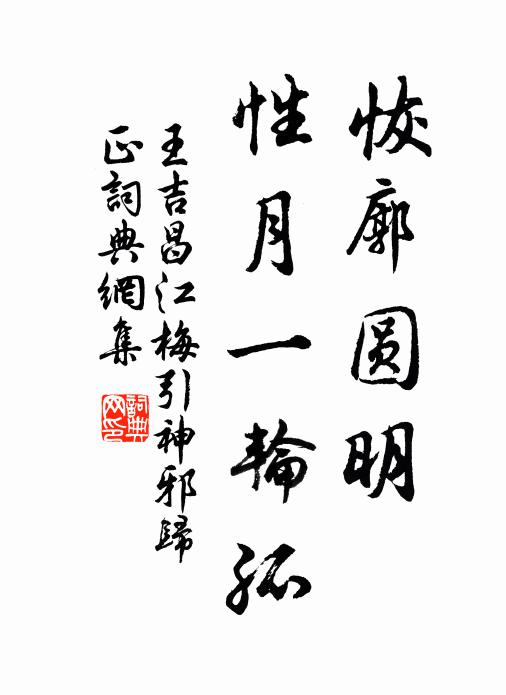 恢廓圆明
性月一輪孤
王吉昌江梅引神邪歸
正詞典網集
詞典网印